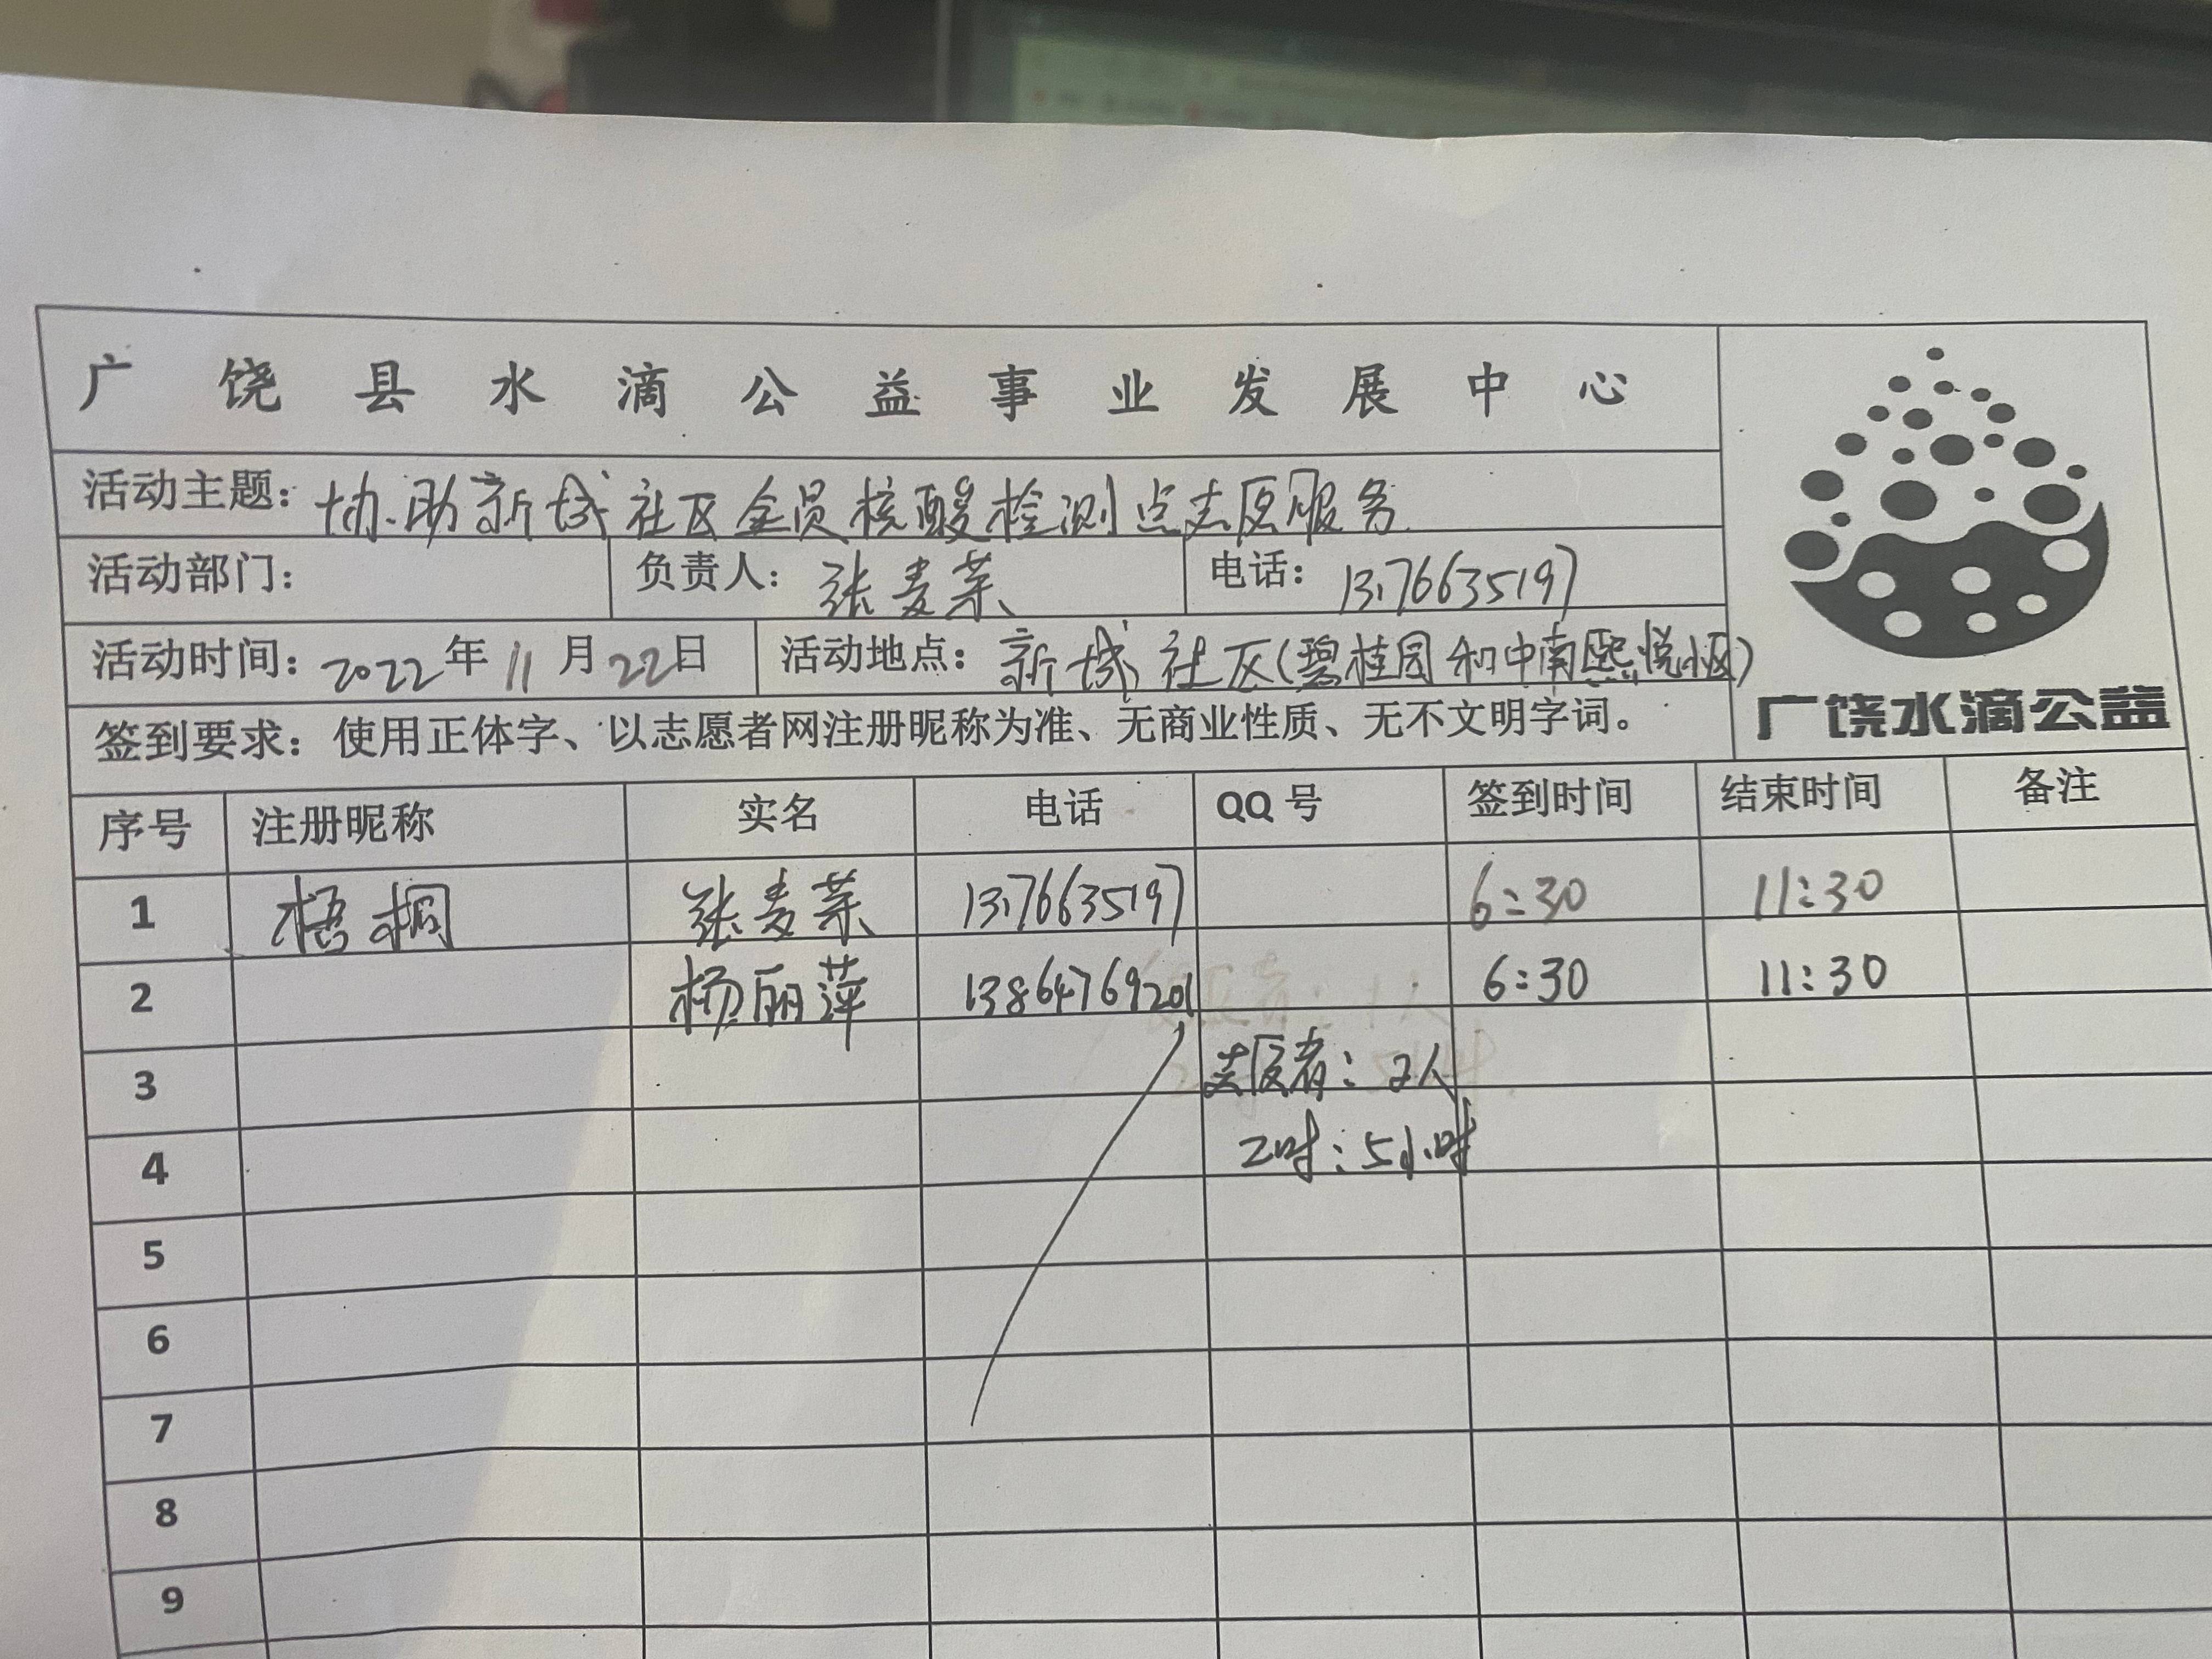 广饶县水滴公益事业发展中心
活动主题：协助新城社区全员核酸检测点志愿服务
活动部门： 负责人：张麦荣 电话：13176635197
活动时间：2022年11月22日 活动地点：新城社区(碧桂园和中南熙悦小区)
广饶水滴公益
签到要求：使用正体字、以志愿者网注册昵称为准、无商业性质、无不文明字词。
序号 注册昵称 实名 电话 QQ号 签到时间 结束时间 备注
1 梧桐 张麦荣 13176635197 6:30 11:30
2 杨丽萍 13864769201 6:30 11:30
3 志愿者：2人
4 工时：5小时
5
6
7
8
9